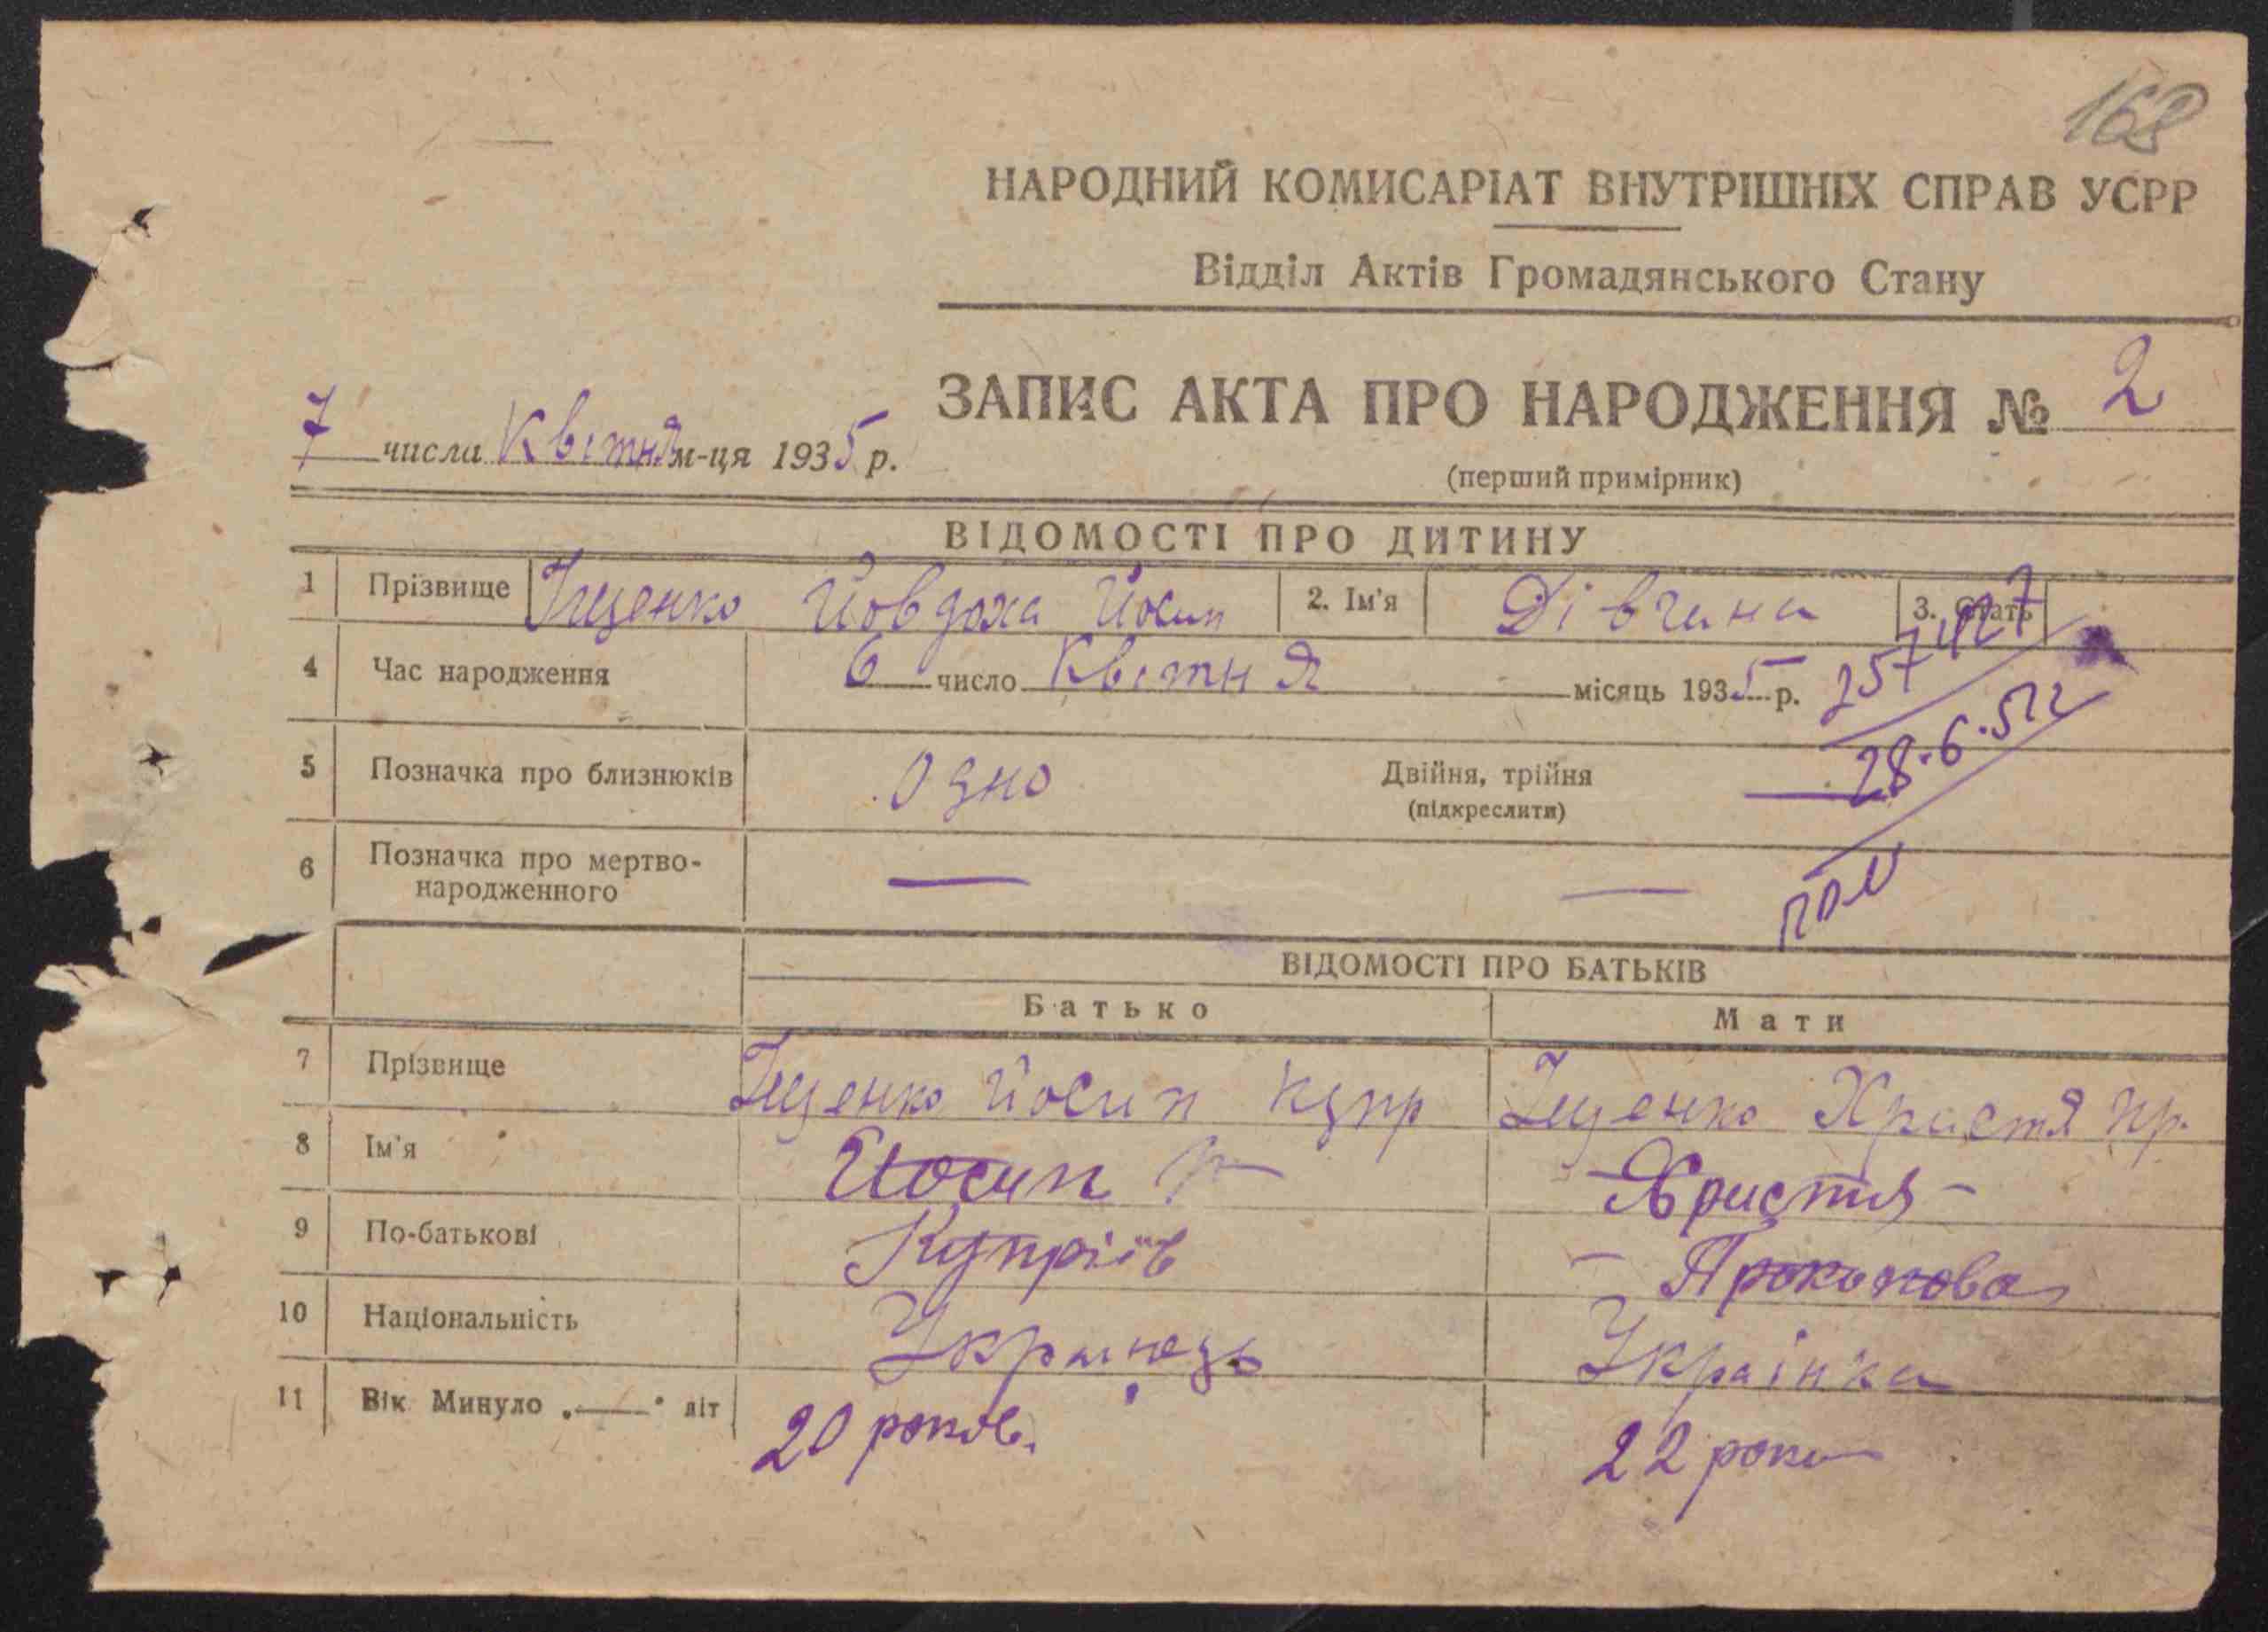 168
НАРОДНИЙ КОМИСАРІАТ ВНУТРІШНІХ СПРАВ УСРР
Відділ Актів Громадянського Стану
ЗАПИС АКТА ПРО НАРОДЖЕННЯ № 2
7 числа Квітня м-ця 1935 р.
(перший примірник)
ВІДОМОСТІ ПРО ДИТИНУ
1 Прізвище Іщенко Йовдоха Йосип 2. Ім'я Дівчина 3. Стать
4 Час народження 6 число Квітня місяць 1935 р.
28.6.51г
5 Позначка про близнюків Одно Двійня, трійня
(підкреслити)
6 Позначка про мертво-
народженного — —
ВІДОМОСТІ ПРО БАТЬКІВ
Батько Мати
7 Прізвище Іщенко Йосип Купр Іщенко Христя Пр.
8 Ім'я Йосип Христя
9 По-батькові Купріїв Прокопова
10 Національність Українець Українка
11 Вік Минуло „—" літ 20 років. 22 роки